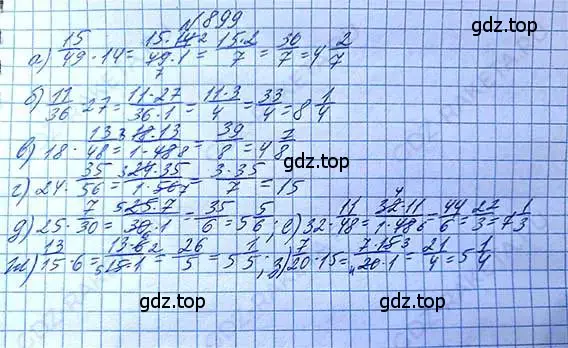 №899
а) 15/49 · 14 = 15·14 2/49·1 7 = 15·2/7 = 30/7 = 4 2/7
б) 11/36 · 27 = 11·27/36·1 = 11·3/4 = 33/4 = 8 1/4
в) 18 · 13/48 = 3 18·13/1·48 8 = 39/8 = 4 7/8
г) 24 · 35/56 = 3 24·35/1·56 7 = 3·35/7 = 15
д) 25 · 7/30 = 5 25·7/30·1 6 = 35/6 = 5 5/6 ; е) 32 · 11/48 = 4 32·11/1·48 6 = 44/6 = 22/3 = 7 1/3
ж) 13/15 · 6 = 13·6 2/5 15·1 = 26/5 = 5 1/5 ; з) 7/20 · 15 = 7·15 3/4 20·1 = 21/4 = 5 1/4
gdz.top
gdz.top
gdz.top
gdz.top
gdz.top